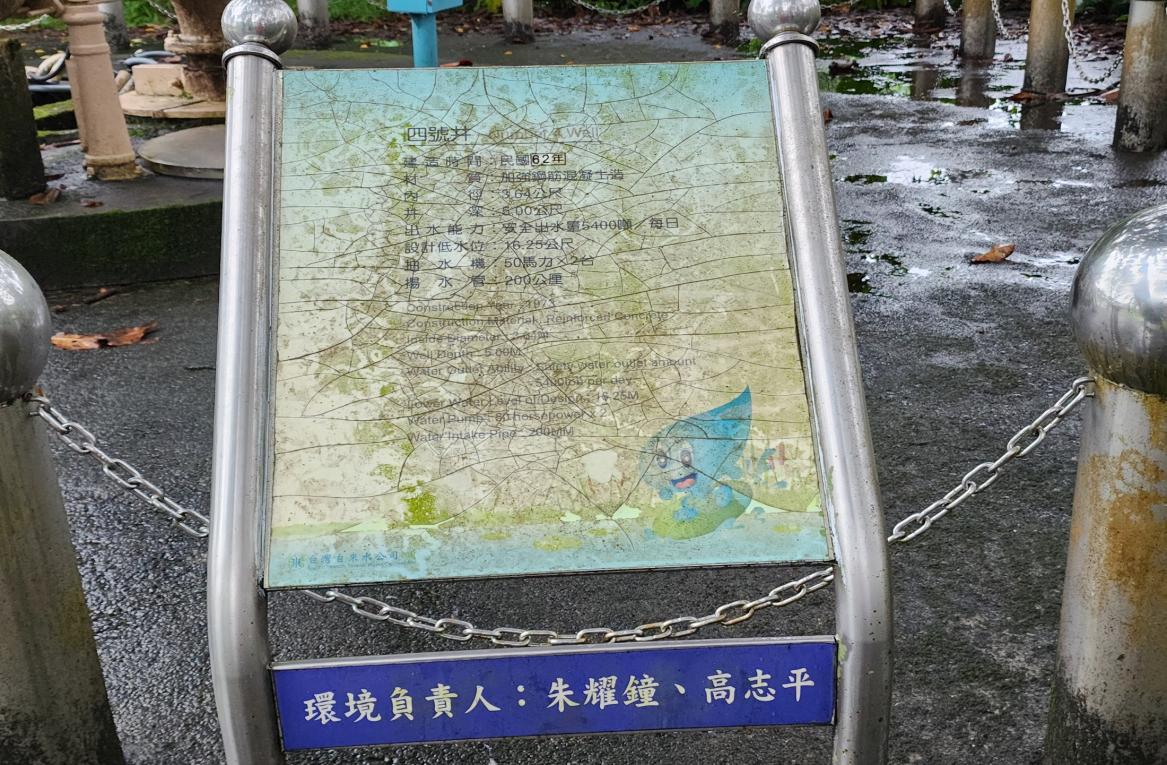 四號井 Number 4 Well
建造時間：民國62年
材質：加強鋼筋混凝土造
內徑：3.04公尺
井深：5.00公尺
出水能力：安全出水量5400噸／每日
設計低水位：16.25公尺
抽水機：50馬力×2台
揚水管：200公厘
Construction Year : 1973
Construction Material : Reinforced Concrete
Inside Diameter : 3.04M
Well Depth : 5.00M
Water Outlet Ability : Safety water outlet amount
5400ton per day
Lower Water Level of Design : 16.25M
Water Pump : 50 horsepower x 2
Water Intake Pipe : 200MM
台灣自來水公司
環境負責人：朱耀鐘、高志平